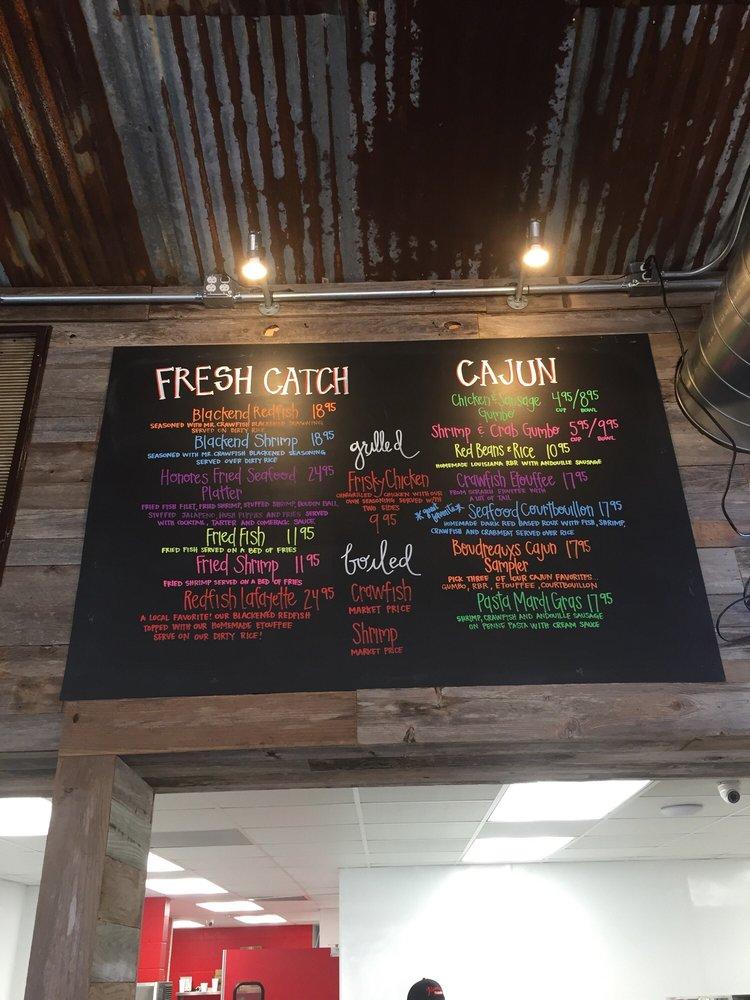 FRESH CATCH
Blackend Redfish 18.95
SEASONED WITH MR. CRAWFISH BLACKENED SEASONING
SERVED ON DIRTY RICE
Blackend Shrimp 18.95
SEASONED WITH MR. CRAWFISH BLACKENED SEASONING
SERVED OVER DIRTY RICE
Honores Fried Seafood 24.95
Platter
FRIED FISH FILET, FRIED SHRIMP, STUFFED SHRIMP, BOUDEN BALL,
STUFFED JALAPENO, HUSH PUPPIES AND FRIES SERVED
WITH COCKTAIL, TARTER AND COMEBACK SAUCE
Fried Fish 11.95
FRIED FISH SERVED ON A BED OF FRIES
Fried Shrimp 11.95
FRIED SHRIMP SERVED ON A BED OF FRIES
Redfish Lafayette 24.95
A LOCAL FAVORITE! OUR BLACKENED REDFISH
TOPPED WITH OUR HOMEMADE ETOUFFEE
SERVE ON OUR DIRTY RICE!
grilled
Frisky Chicken
CHARGRILLED CHICKEN WITH OUR
OWN SEASONING SERVED WITH
TWO SIDES
9.95
boiled
Crawfish
MARKET PRICE
Shrimp
MARKET PRICE
CAJUN
Chicken & Sausage 4.95/8.95
Gumbo CUP BOWL
Shrimp & Crab Gumbo 5.95/9.95
CUP BOWL
Red Beans & Rice 10.95
HOMEMADE LOUISIANA RBR WITH ANDOUILLE SAUSAGE
Crawfish Etouffee 17.95
FROM SCRATCH ETOUFFEE WITH
A LOT OF TAIL
Seafood Courtbouillon 17.95
HOMEMADE DARK RED BASED ROUX WITH FISH, SHRIMP,
CRAWFISH AND CRABMEAT SERVED OVER RICE
Boudreauxs Cajun 17.95
Sampler
PICK THREE OF OUR CAJUN FAVORITES...
GUMBO, RBR, ETOUFFEE, COURTBOUILLON
Pasta Mardi Gras 17.95
SHRIMP, CRAWFISH AND ANDOUILLE SAUSAGE
ON PENNE PASTA WITH CREAM SAUCE